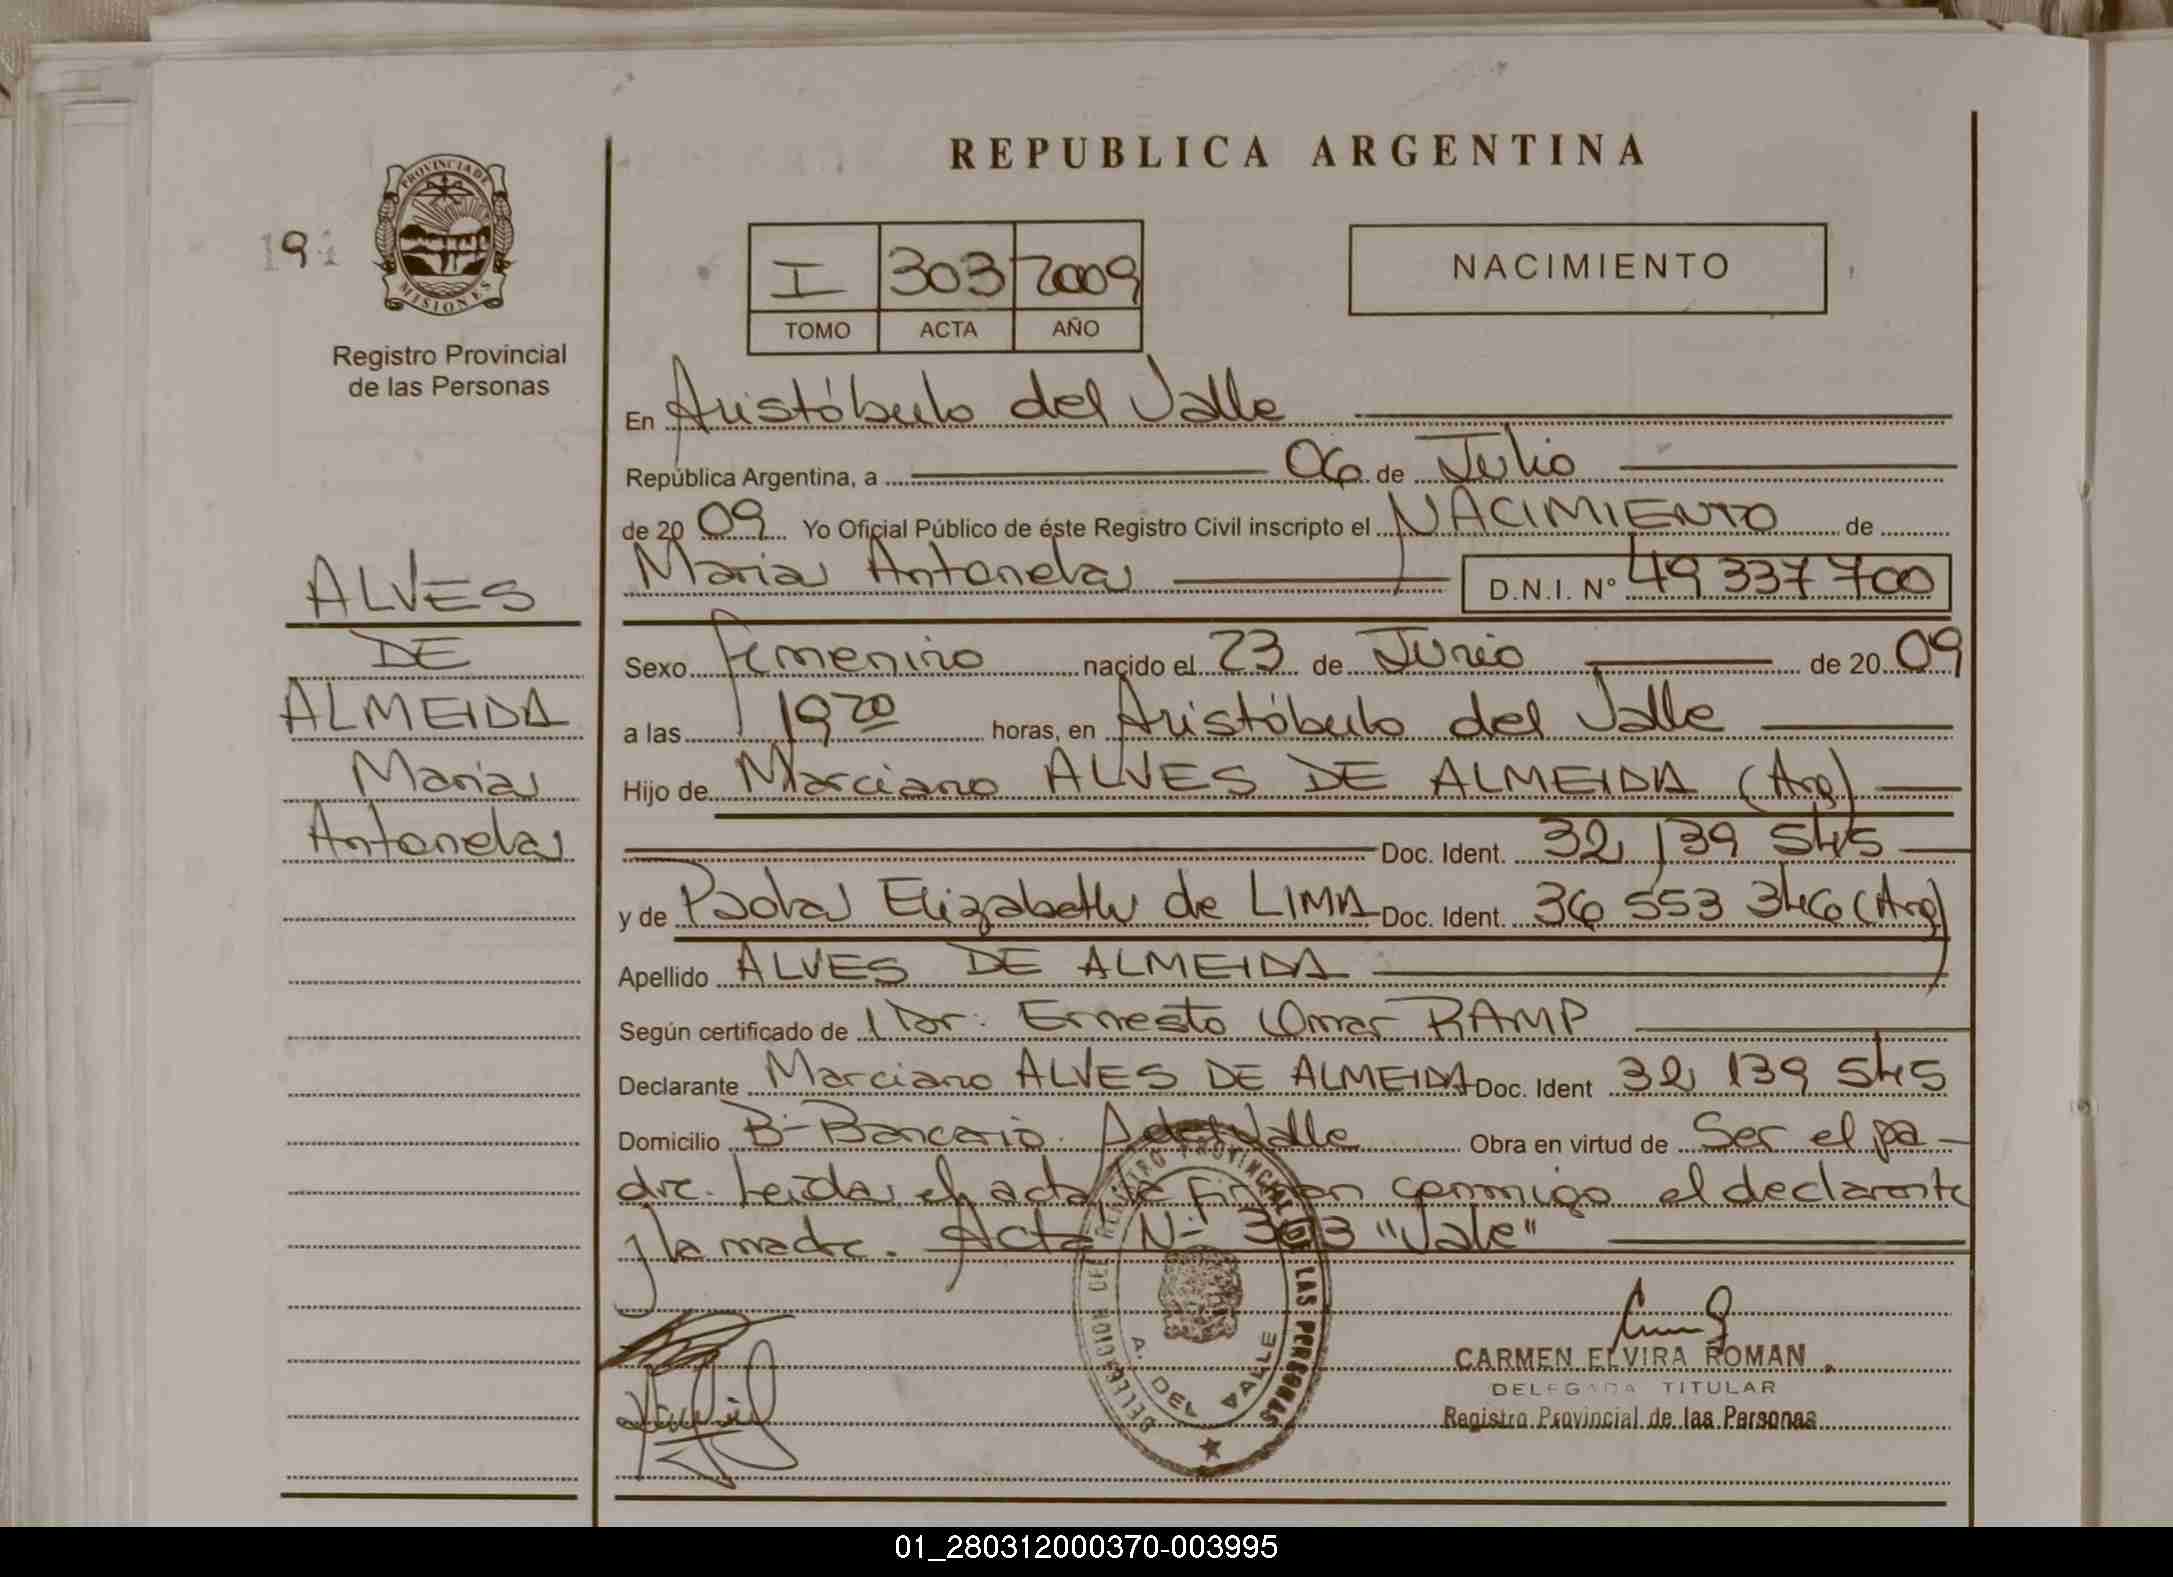 REPUBLICA ARGENTINA
PROVINCIA DE
MISIONES
Registro Provincial
de las Personas
I 303 2009
TOMO ACTA AÑO
NACIMIENTO
En Aristóbulo del Valle
República Argentina, a 06 de Julio
de 20 09 Yo Oficial Público de éste Registro Civil inscripto el NACIMIENTO de
Maria Antonela D.N.I. N° 49 337 700
ALVES
DE
ALMEIDA
Maria
Antonela
Sexo femenino nacido el 23 de Junio de 20 09
a las 19 20 horas, en Aristóbulo del Valle
Hijo de Marciano ALVES DE ALMEIDA (Arg)
Doc. Ident. 32 139 545
y de Paola Elizabeth de LIMA Doc. Ident. 36 553 346 (Arg)
Apellido ALVES DE ALMEIDA
Según certificado de Dr. Ernesto Omar RAMP
Declarante Marciano ALVES DE ALMEIDA Doc. Ident 32 139 545
Domicilio B- Bancario. A del Valle Obra en virtud de Ser el pa-
dre. Leida el acta la firman conmigo el declarante
y la madre. Acta N- 303 "Vale"
DELEGACION DEL REGISTRO PROVINCIAL DE LAS PERSONAS
A. DEL VALLE
CARMEN ELVIRA ROMAN
DELEGADA TITULAR
Registro Provincial de las Personas
01_280312000370-003995